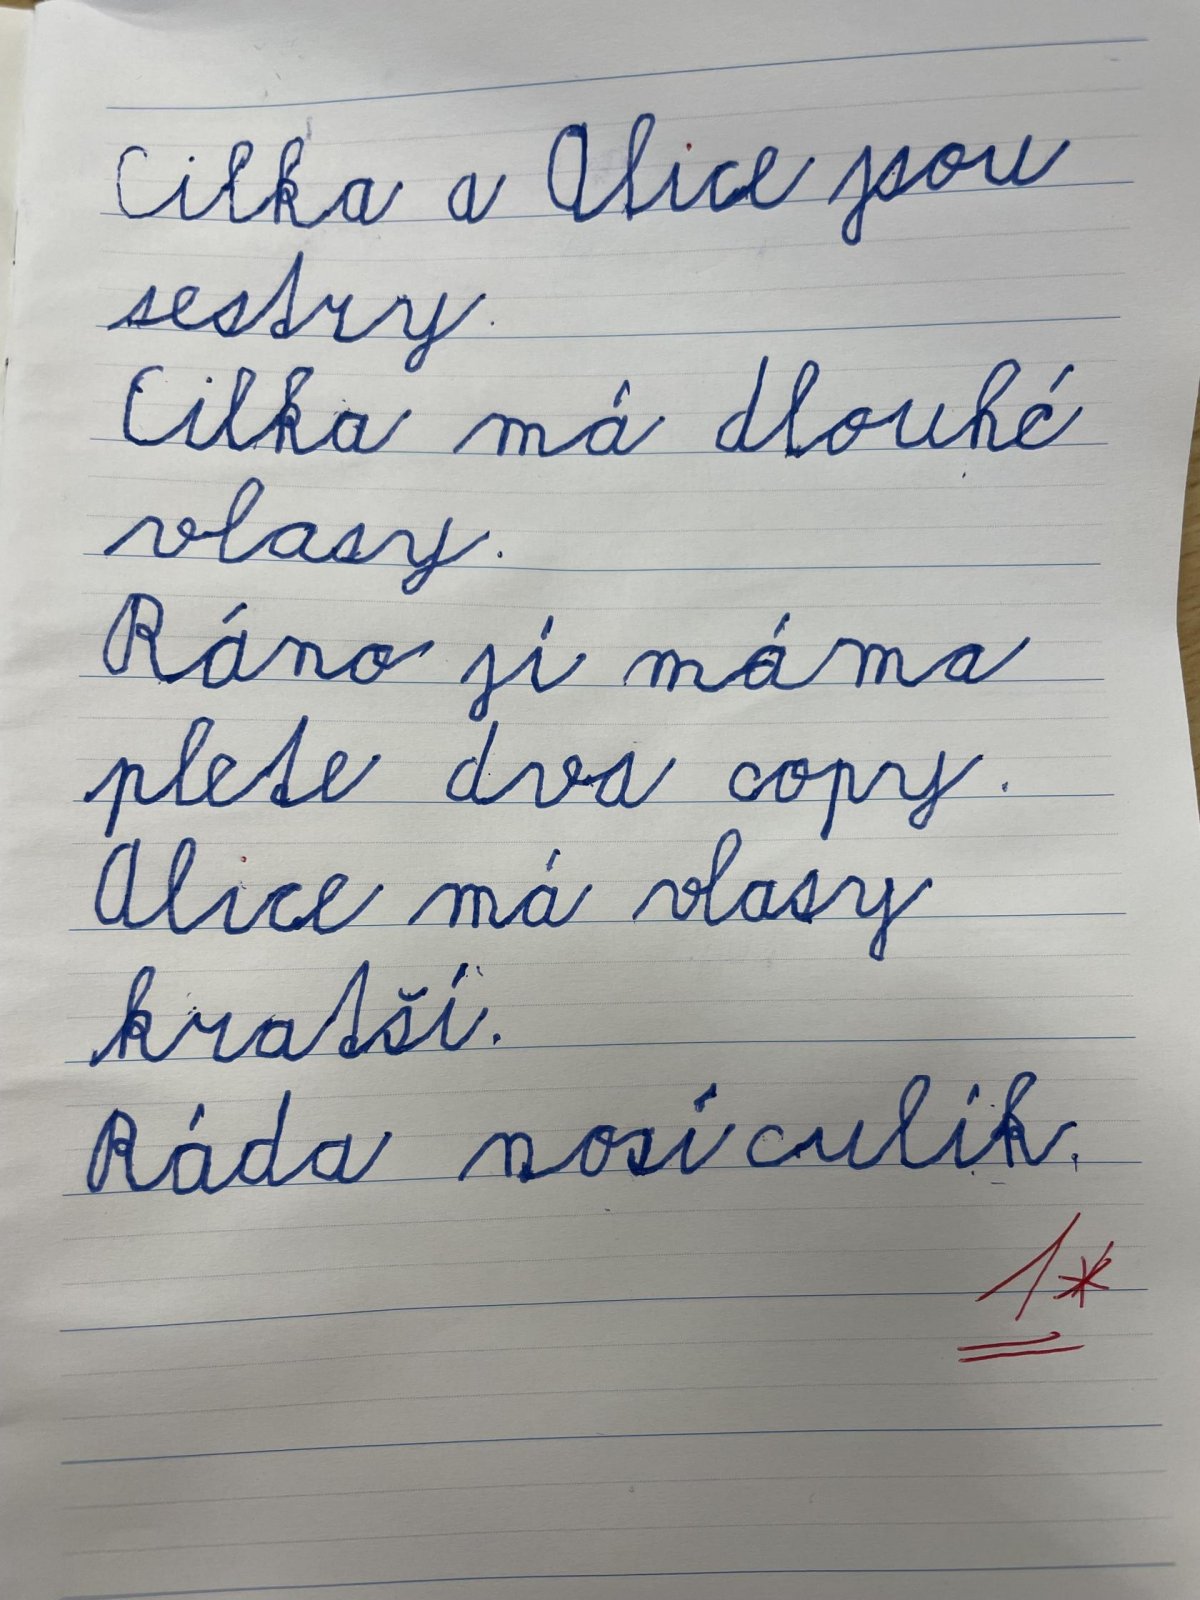 Cilka a Alice jsou
sestry.
Cilka má dlouhé
vlasy.
Ráno jí máma
plete dva copy.
Alice má vlasy
kratší.
Ráda nosí culík.
1*